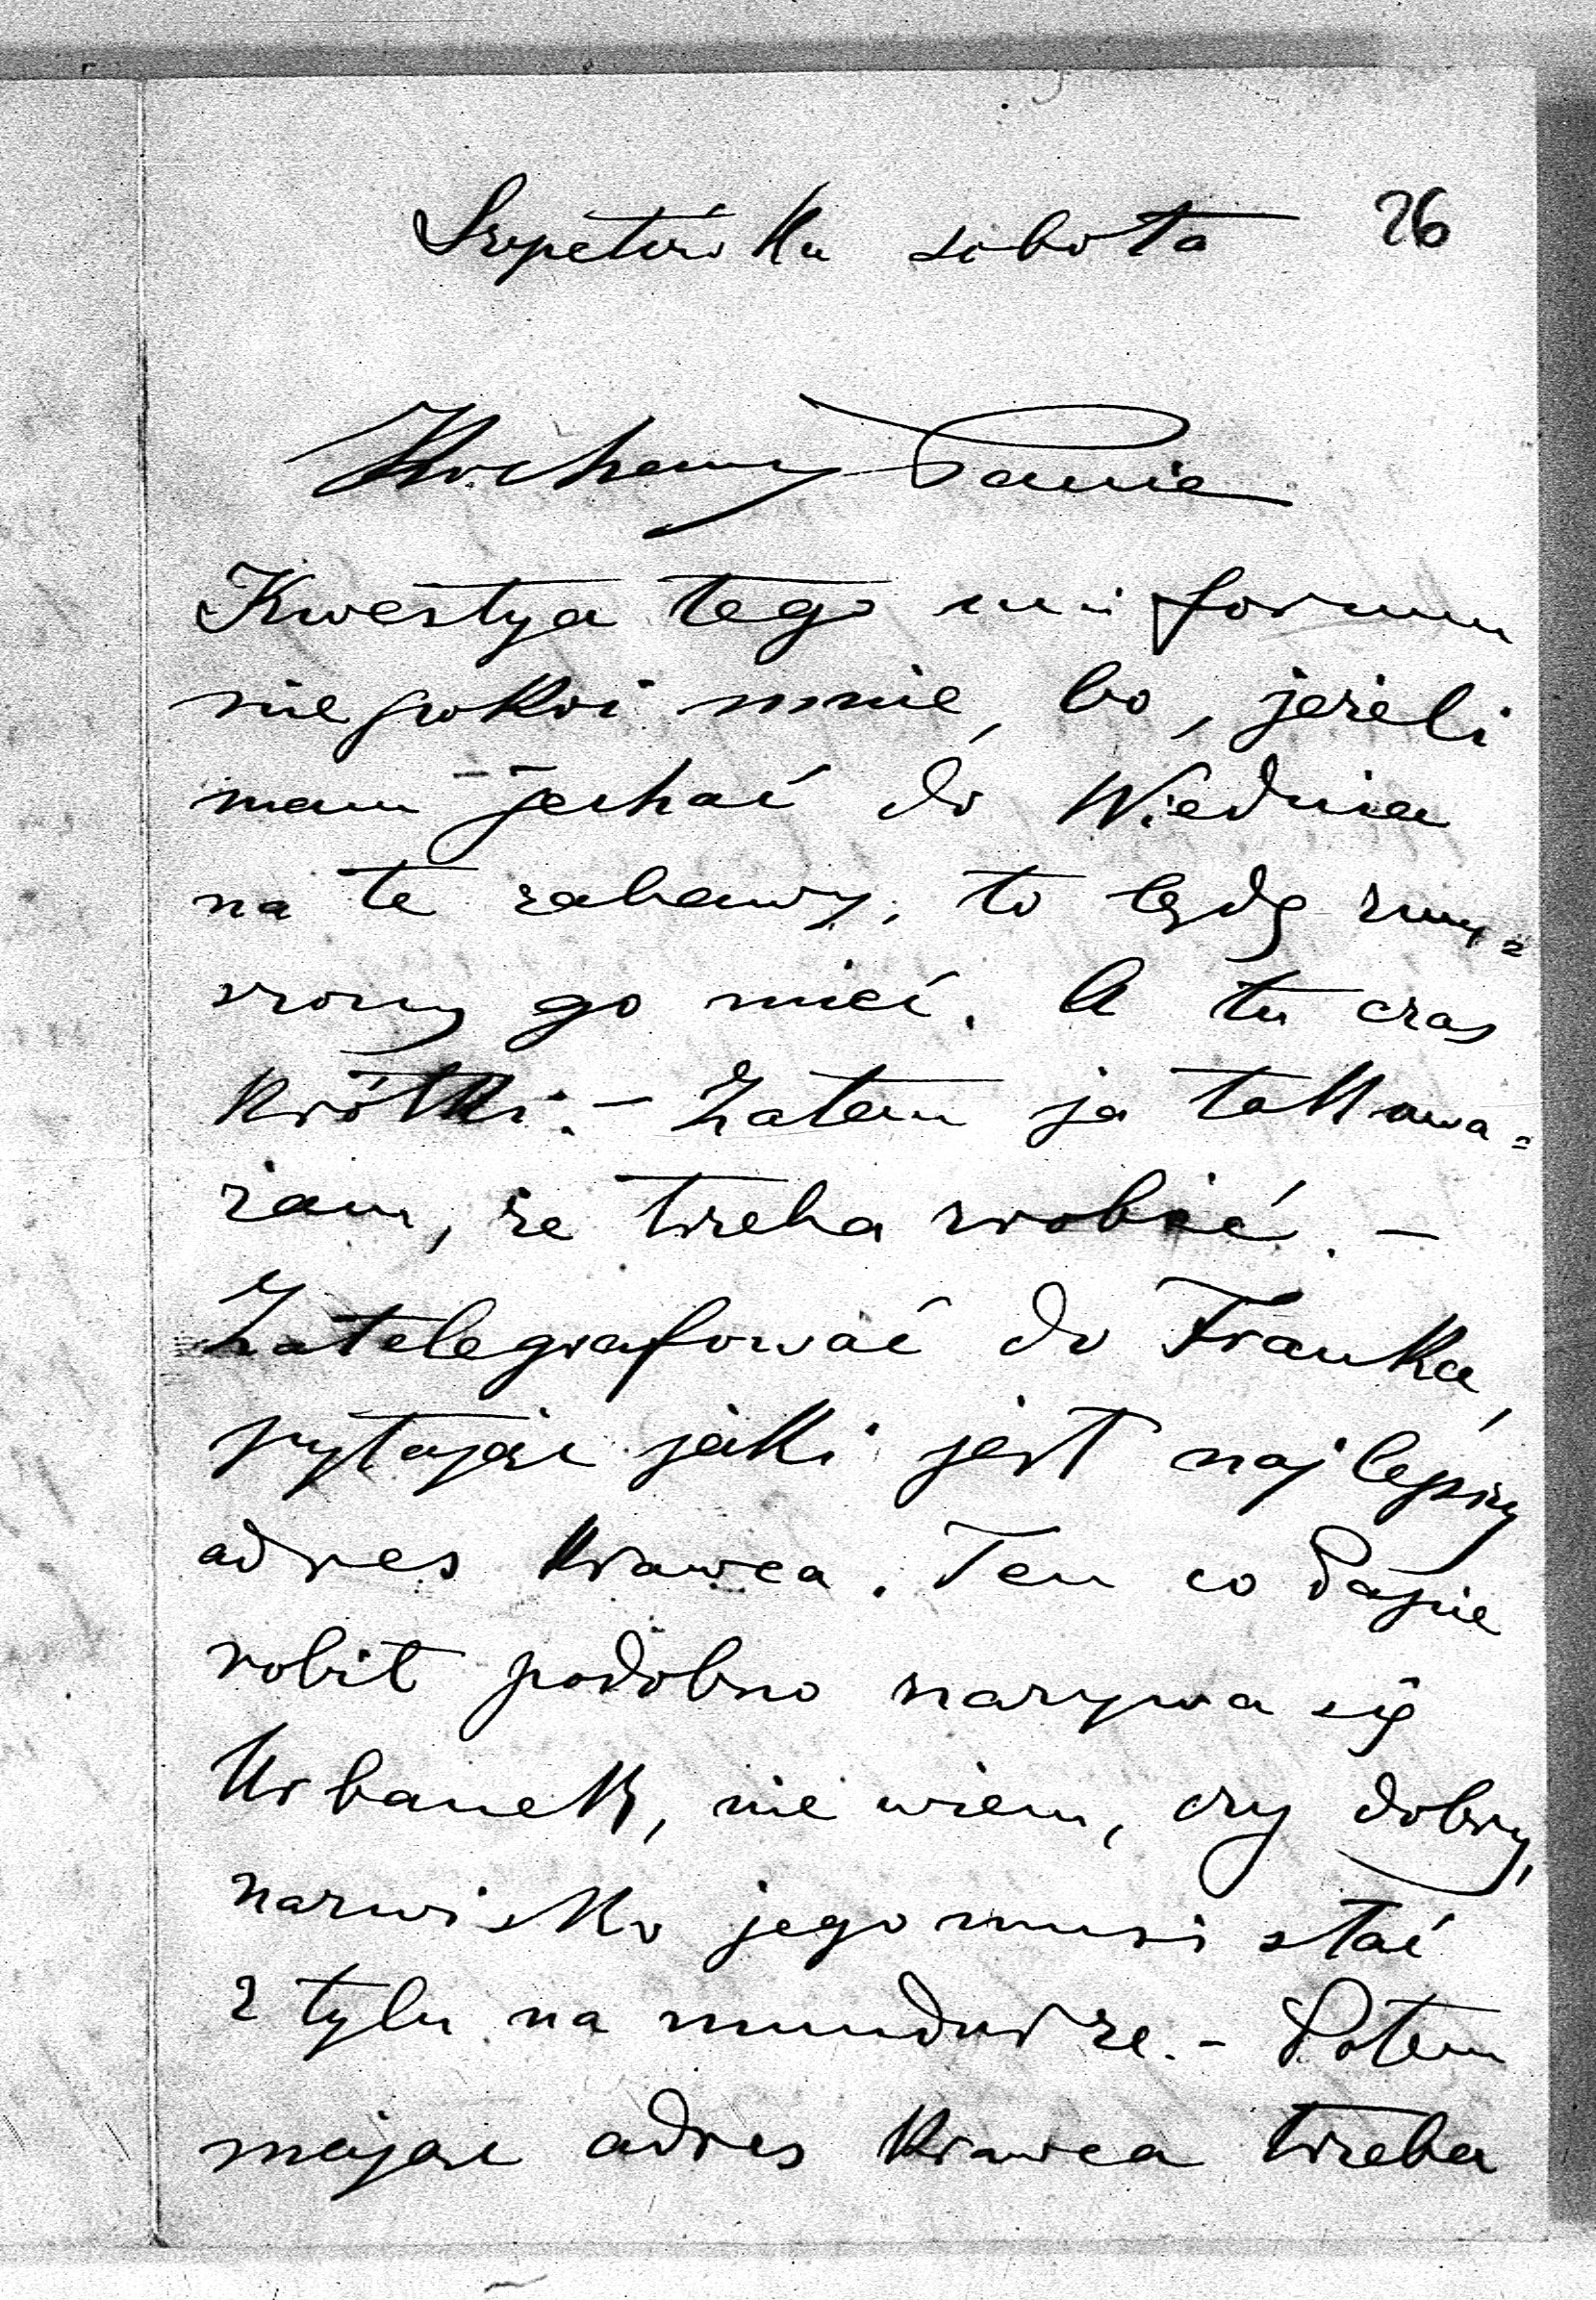 Szepetówka sobota 26
Kochany Panie
Kwestya tego uniformu
niepokoi mnie, bo, jeżeli
mam jechać do Wiednia
na te zabawy, to będę zmu=
szony go mieć. A tu czas
krótki. – Zatem ja tak uwa=
żam, że trzeba zrobić. –
Zatelegrafować do Franka,
pytając jaki jest najlepszy
adres krawca. Ten co
robił podobno nazywa się
Urbanek, nie wiem, czy dobry,
nazwisko jego musi stać
z tyłu na mundurze. – Potem
mając adres krawca trzeba